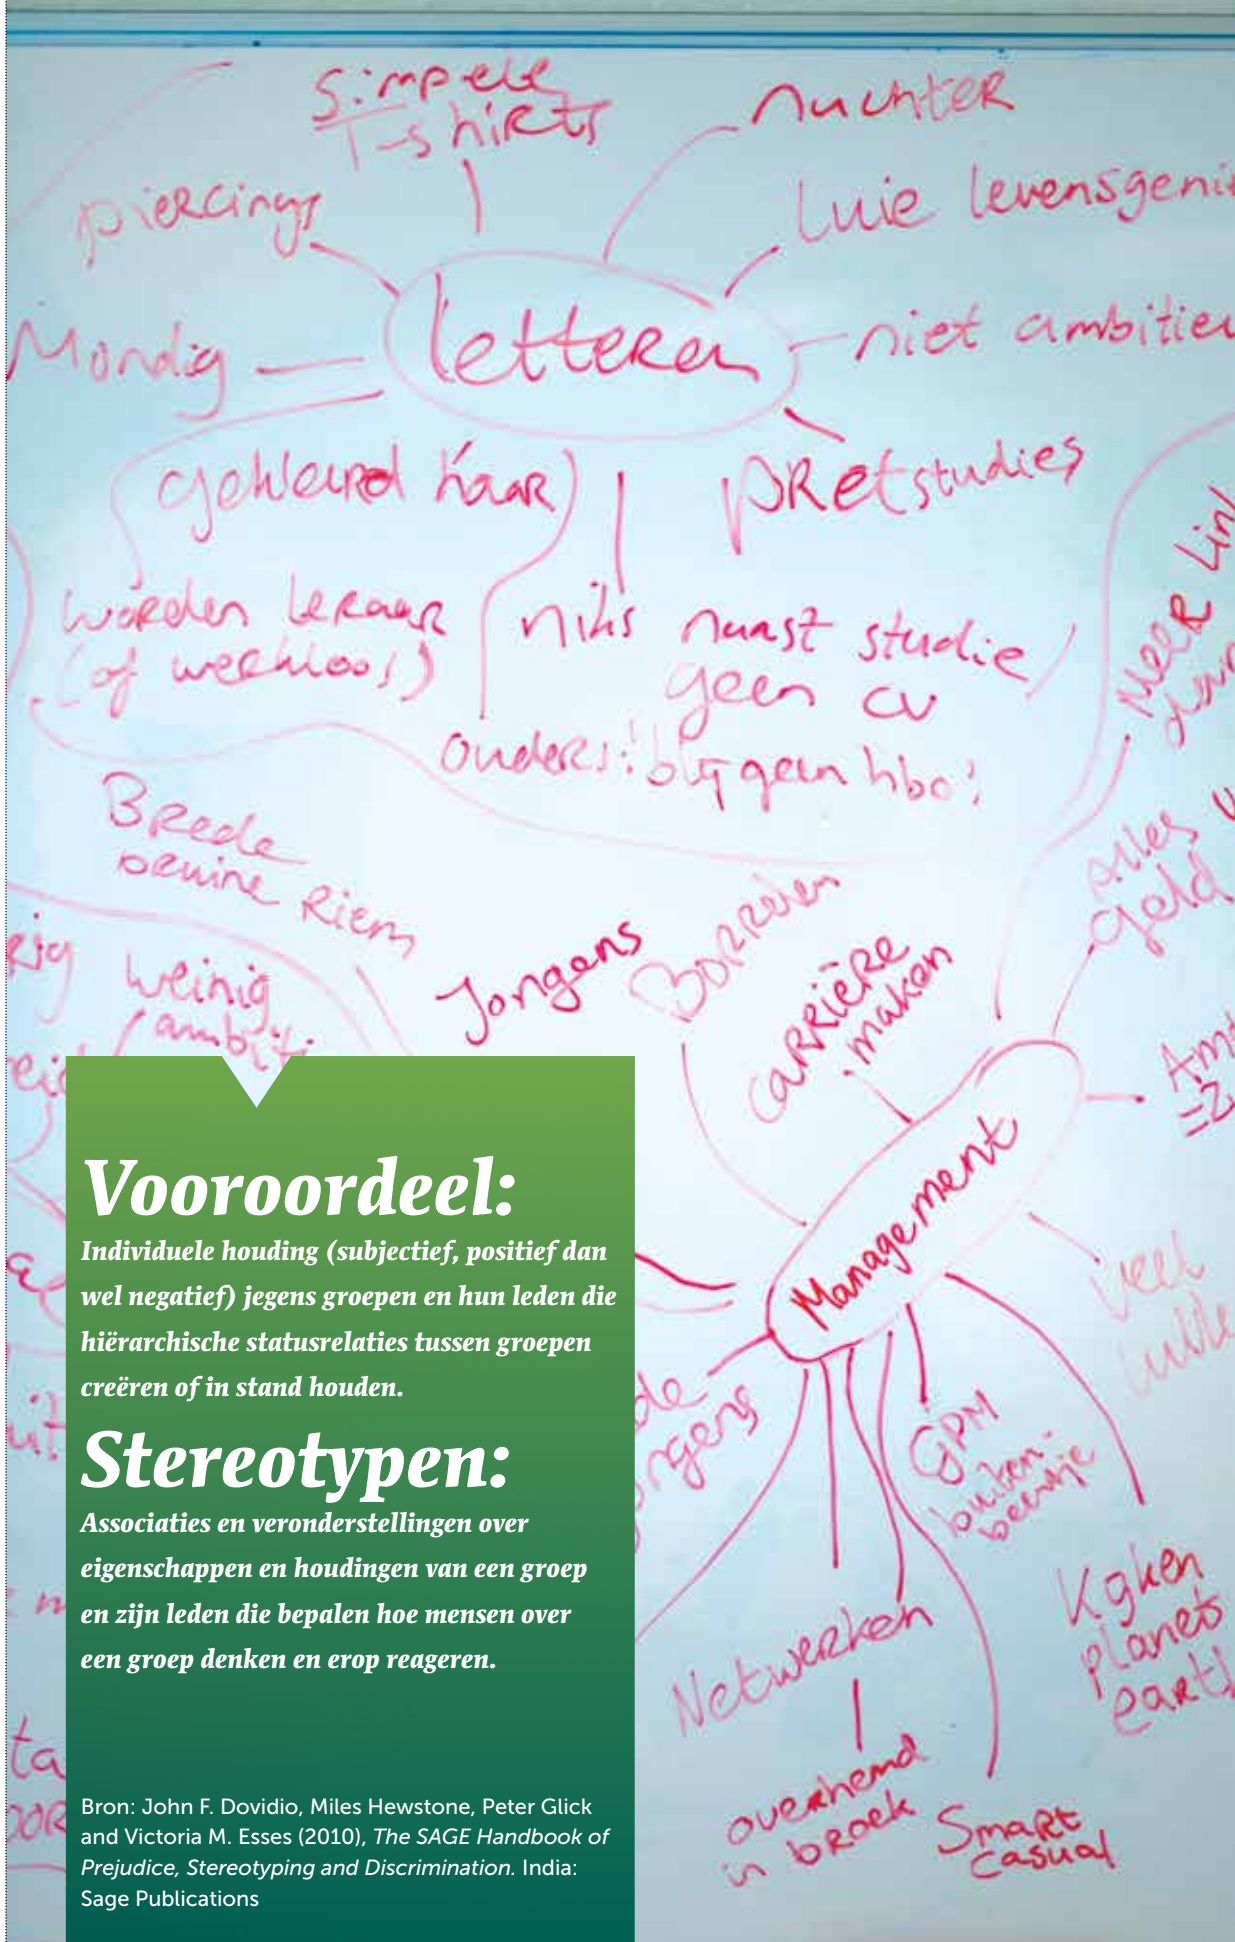 simpele
T-shirts
nuchter
piercings
Luie levensgeni
letteren
niet ambitieu
Mondig
gekleurd haar
pretstudies
worden leraar
(of werkloos!)
niks naast studie
geen cv
ouders: blij geen hbo!
Meer
Alles
geld
Brede
bruine Riem
Weinig
ambiti
Jongens
Borrelen
carrière
maken
Management
veel
GPM
buiten-
beentje
Netwerken
overhemd
in broek
Smart
casual
Kijken
planets
earth
Vooroordeel:
Individuele houding (subjectief, positief dan
wel negatief) jegens groepen en hun leden die
hiërarchische statusrelaties tussen groepen
creëren of in stand houden.
Stereotypen:
Associaties en veronderstellingen over
eigenschappen en houdingen van een groep
en zijn leden die bepalen hoe mensen over
een groep denken en erop reageren.
Bron: John F. Dovidio, Miles Hewstone, Peter Glick
and Victoria M. Esses (2010), The SAGE Handbook of
Prejudice, Stereotyping and Discrimination. India:
Sage Publications